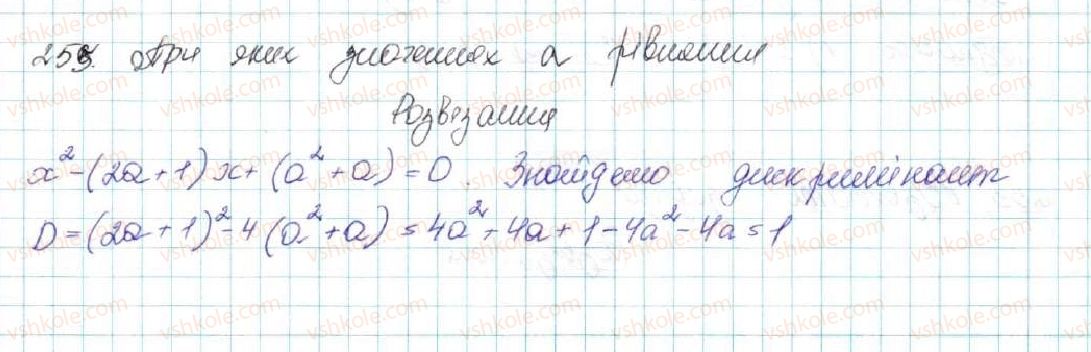 255. При яких значеннях a рівняння
Розвязання
x² - (2a + 1)x + (a² + a) = 0. Знайдемо дискримінант
D = (2a + 1)² - 4(a² + a) = 4a² + 4a + 1 - 4a² - 4a = 1